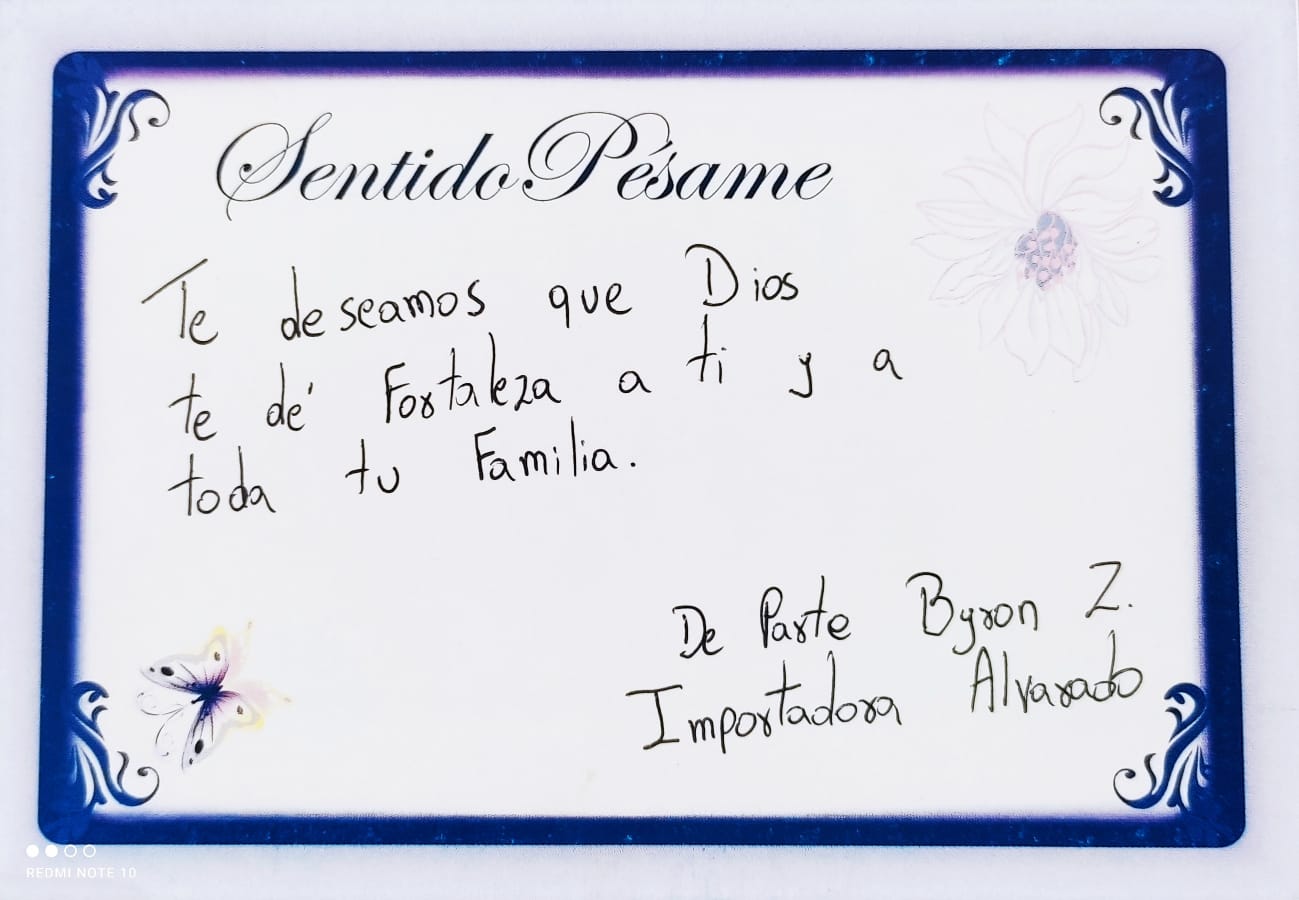 Sentido Pésame
Te deseamos que Dios
te dé Fortaleza a ti y a
toda tu Familia.
De Parte Byron Z.
Importadora Alvarado
REDMI NOTE 10